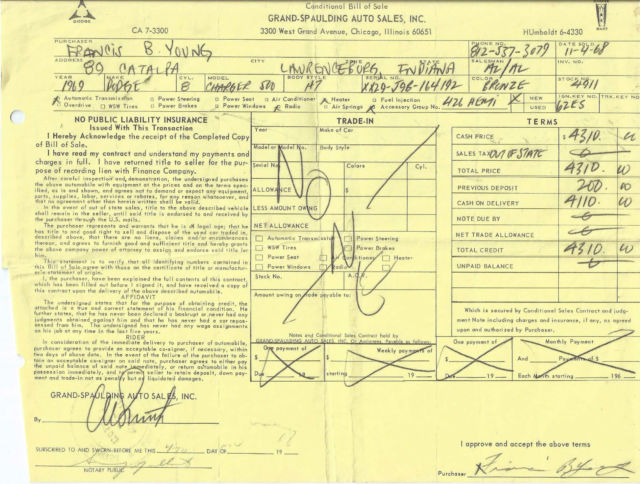 Conditional Bill of Sale
GRAND-SPAULDING AUTO SALES, INC.
DODGE
CA 7-3300
3300 West Grand Avenue, Chicago, Illinois 60651
HUmboldt 6-4330
PURCHASER FRANCIS B. YOUNG
PHONE NO. 812-537-3079
DATE SOLD 11-4-68
ADDRESS 89 CATALPA
CITY LAWRENCEBURG, INDIANA
SALESMAN AL/AL
INV. NO.
YEAR 1969
MAKE DODGE
CYL. 8
MODEL CHARGER 500
BODY STYLE HT
SERIAL NO. XX29-J9B-164192
COLOR BRONZE
STOCK NO. 4911
Automatic Transmission Power Steering Power Seat Air Conditioner Heater Fuel Injection
Overdrive WSW Tires Power Brakes Power Windows Radio Air Springs Accessory Group No. 426 HEMI
X NEW
USED
IGN. KEY NO. 62E5
TRK. KEY NO.
NO PUBLIC LIABILITY INSURANCE
Issued With This Transaction
I Hereby Acknowledge the receipt of the Completed Copy
of Bill of Sale.
I have read my contract and understand my payments and
charges in full. I have returned title to seller for the pur-
pose of recording lien with Finance Company.
After careful inspection and demonstration, the undersigned purchases
the above automobile with equipment at the prices and on the terms spec-
ified, as is and shown, and agrees not to demand or expect any equipment,
parts, supplies, labor, services or rebates, for any reason whatsoever, and
that no agreement other than herein written shall be valid.
In the event of out of state sales, title to the above described vehicle
shall remain in the seller, until said title is endorsed to and received by
the purchaser through the U.S. mails.
The purchaser represents and warrants that he is of legal age; that he
has title to and good right to sell and dispose of the used car traded in,
described above, that there are no liens, claims and/or encumbrances
thereon, and agrees to furnish good and sufficient title and hereby grants
the above company power of attorney to assign and endorse said title for
him.
This statement is to verify that all identifying numbers contained in
this Bill of Sale agree with those on the certificate of title or manufac-
turers statement of origin.
I, the purchaser, have been explained the full contents of this contract,
which has been filled out before I signed it, and have received a copy of
this contract upon the delivery of the above described automobile.
AFFIDAVIT
The undersigned states that for the purpose of obtaining credit, the
attached is a true and correct statement of his financial condition. He
further states, that he has never been declared a bankrupt or never had any
judgments obtained against him and that he has never had a car repos-
sessed from him. The undersigned has never had any wage assignments
on his job at any time in the last five years.
RIDER
In consideration of the immediate delivery to purchaser of automobile,
purchaser agrees to provide an acceptable co-signer, if necessary, within
two days of above date. In the event of the failure of the purchaser to ob-
tain an acceptable co-signer on said note, purchaser agrees to either pay
the unpaid balance of said note immediately, or return automobile in his
possession immediately, and to permit seller to retain deposit, down pay-
ment and trade-in not as penalty but as liquidated damages.
GRAND-SPAULDING AUTO SALES, INC.
By
SUBSCRIBED TO AND SWORN BEFORE ME THIS DAY OF 19
NOTARY PUBLIC
TRADE-IN
Year Make of Car
Model or Model No. Body Style
Serial No. Colors Cyl.
ALLOWANCE $
LESS AMOUNT OWING
NET ALLOWANCE
Automatic Transmission Power Steering
WSW Tires Power Brakes
Power Seat Air Conditioner Heater
Power Windows Radio
Stock No. A.C.V.
Amount owing on trade payable to:
NO
Notes and Conditional Sales Contract held by
GRAND-SPAULDING AUTO SALES, INC. Or Assignee, Payable as follows:
One payment of
$
Due 19
Weekly payments of
$
starting 19
TERMS
CASH PRICE 4310. 00
SALES TAX OUT OF STATE
TOTAL PRICE 4310 00
PREVIOUS DEPOSIT 200. 00
CASH ON DELIVERY 4110. 00
NOTE DUE BY
NET TRADE ALLOWANCE
TOTAL CREDIT 4310 00
UNPAID BALANCE
Which is secured by Conditional Sales Contract and Judg-
ment Note including charges and insurance, if any, as agreed
upon and authorized by Purchaser.
One payment of
$
Due 19
Monthly Payment
And Payments of $
Each Month starting 196
I approve and accept the above terms
Purchaser Francis B Young